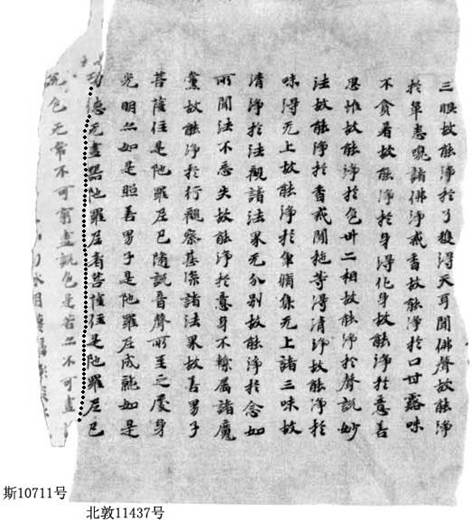 三昧能淨於耳獲得天耳聞佛聲故能淨
於鼻悉嗅諸佛淨戒香故能淨於口甘露味
不貪着故能淨於身得化身故能淨於意善
思惟故能淨於色卅二相故能淨於聲說妙
法故能淨於香戒聞施等得清淨故能淨於
味得无上故能淨於觸集无上諸三昧故
清淨於法觀諸法界无分別故能淨於念如
所聞法不忘失故能淨於意身不繫屬諸魔
業故能淨於行觀察甚深諸法界故善男子
菩薩住是陀羅尼已隨說音聲所至之處身
光明亦如是照善男子是陀羅尼成就如是
功德无盡器陀羅尼者菩薩住是陀羅尼已
說色无常不可窮盡說色是苦亦不可盡
斯10711号
北敦11437号